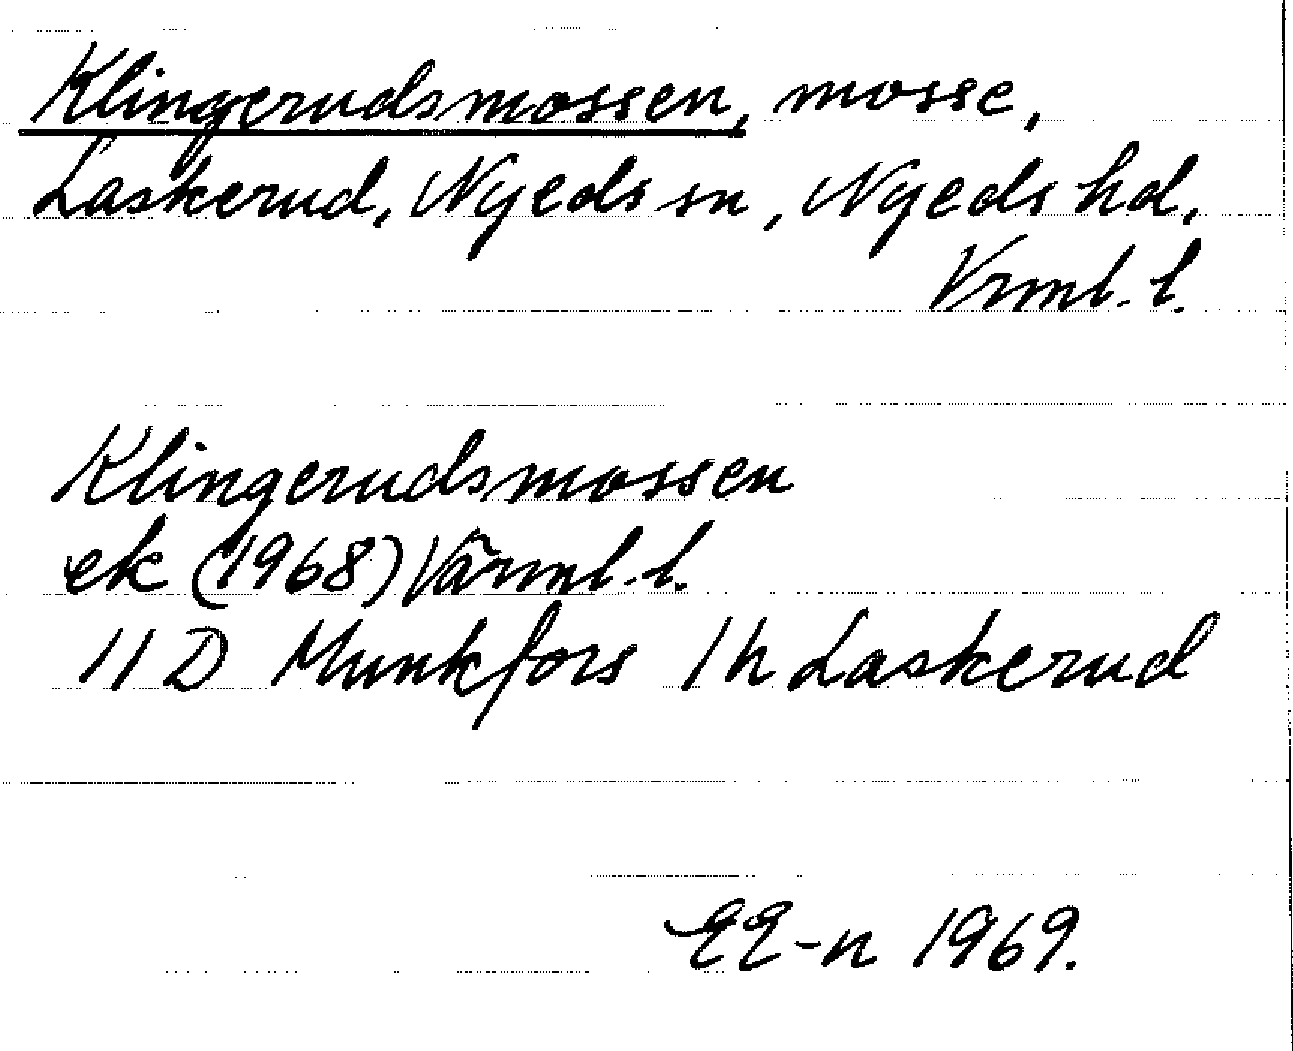 Klingerudsmossen, mosse,
Laskerud, Nyeds sn, Nyeds hd,
Vrml. l.
Klingerudsmossen
ek (1968) Värml. l.
11 D Munkfors 1 h Laskerud
EE-n 1969.